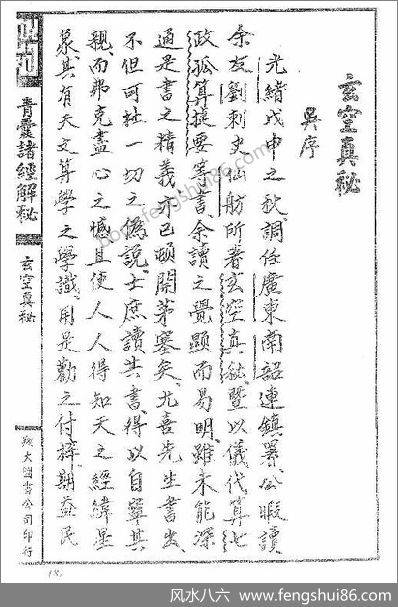 玄空真秘
吳序
光緒戊申之秋調任廣東南韶連鎮署公暇讀
余友劉刺史仙舫所著玄空真秘暨以儀代算七
政孤算提要等書余讀之覺顯而易明雖未能深
通是書之精義亦已頓開茅塞矣尤喜先生書出
不但可祉一切之偽說士庶讀其書得以自寧其
親而弗克盡心之憾且使人人得知天之經緯星
象其有天文算學之學識用是勸之付梓期益民
青囊諸經解秘
玄空真秘
翔大圖書公司印行
18
bbs.fengshui86.com
风水八六 www.fengshui86.com